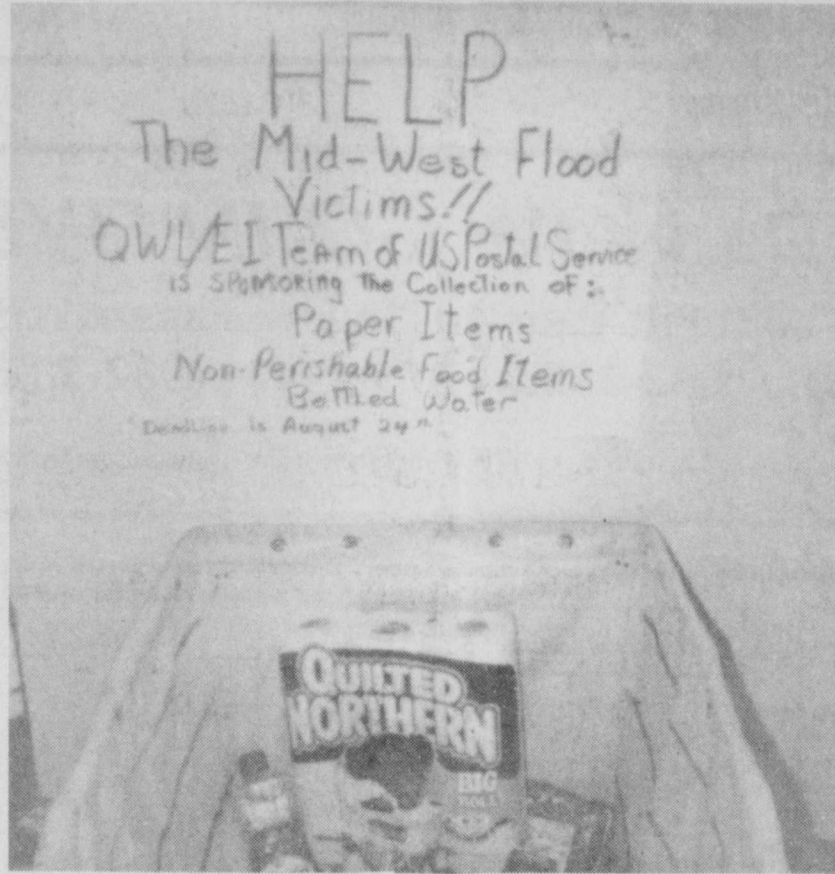 HELP
The Mid-West Flood
Victims!!
QWL/EI Team of US Postal Service
is sponsoring the Collection of:
Paper Items
Non-Perishable Food Items
Bottled Water
Deadline is August 24th
QUILTED
NORTHERN
BIG
ROLL